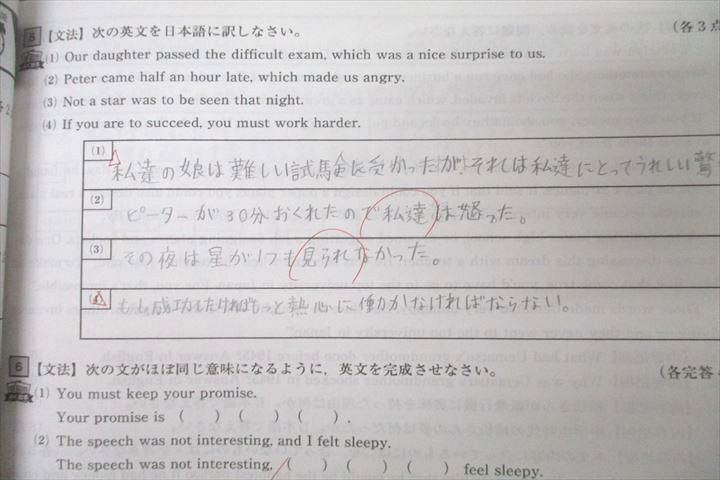 5 【文法】次の英文を日本語に訳しなさい。 (各3点
(1) Our daughter passed the difficult exam, which was a nice surprise to us.
(2) Peter came half an hour late, which made us angry.
(3) Not a star was to be seen that night.
(4) If you are to succeed, you must work harder.
(1) 私達の娘は難しい試験に受かったが、それは私達にとってうれしい驚
(2) ピーターが30分おくれたので私達は怒った。
(3) その夜は星が1つも見られなかった。
(4) もし成功したければもっと熱心に働かなければならない。
6 【文法】次の文がほぼ同じ意味になるように，英文を完成させなさい。 (各完答
(1) You must keep your promise.
Your promise is ( ) ( ) ( ) ( ).
(2) The speech was not interesting, and I felt sleepy.
The speech was not interesting, ( ) ( ) ( ) feel sleepy.